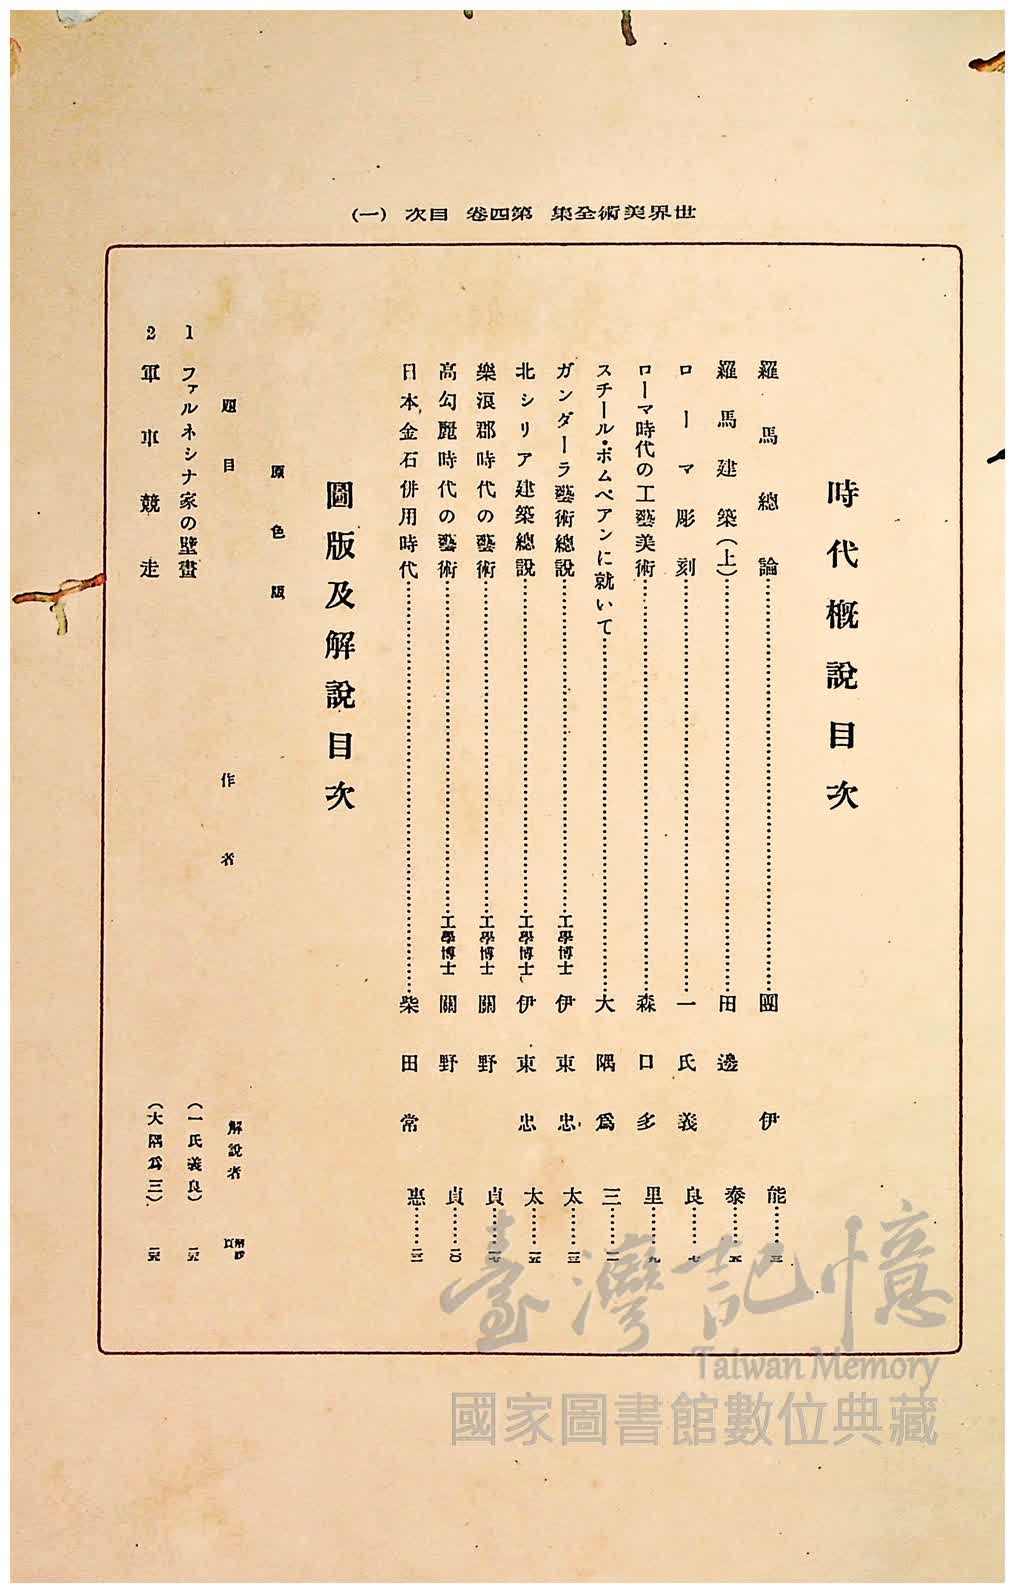 世界美術全集 第四卷 目次 (一)
時代概說目次
羅馬總論………團伊能……三
羅馬建築(上)………田邊泰……五
ローマ彫刻………一氏義良……七
ローマ時代の工藝美術………森口多里……九
スチール・ポムペアンに就いて………大隅爲三……一一
ガンダーラ藝術總說………工學博士 伊東忠太……一三
北シリア建築總說………工學博士 伊東忠太……一五
樂浪郡時代の藝術………工學博士 關野貞……一七
高勾麗時代の藝術………工學博士 關野貞……二〇
日本金石併用時代………柴田常惠……
圖版及解說目次
原色版
題目 作者 解說者 解說頁
1 ファルネシナ家の壁畫 (一氏義良)
2 軍車競走 (大隅爲三)
臺灣記憶
Taiwan Memory
國家圖書館數位典藏